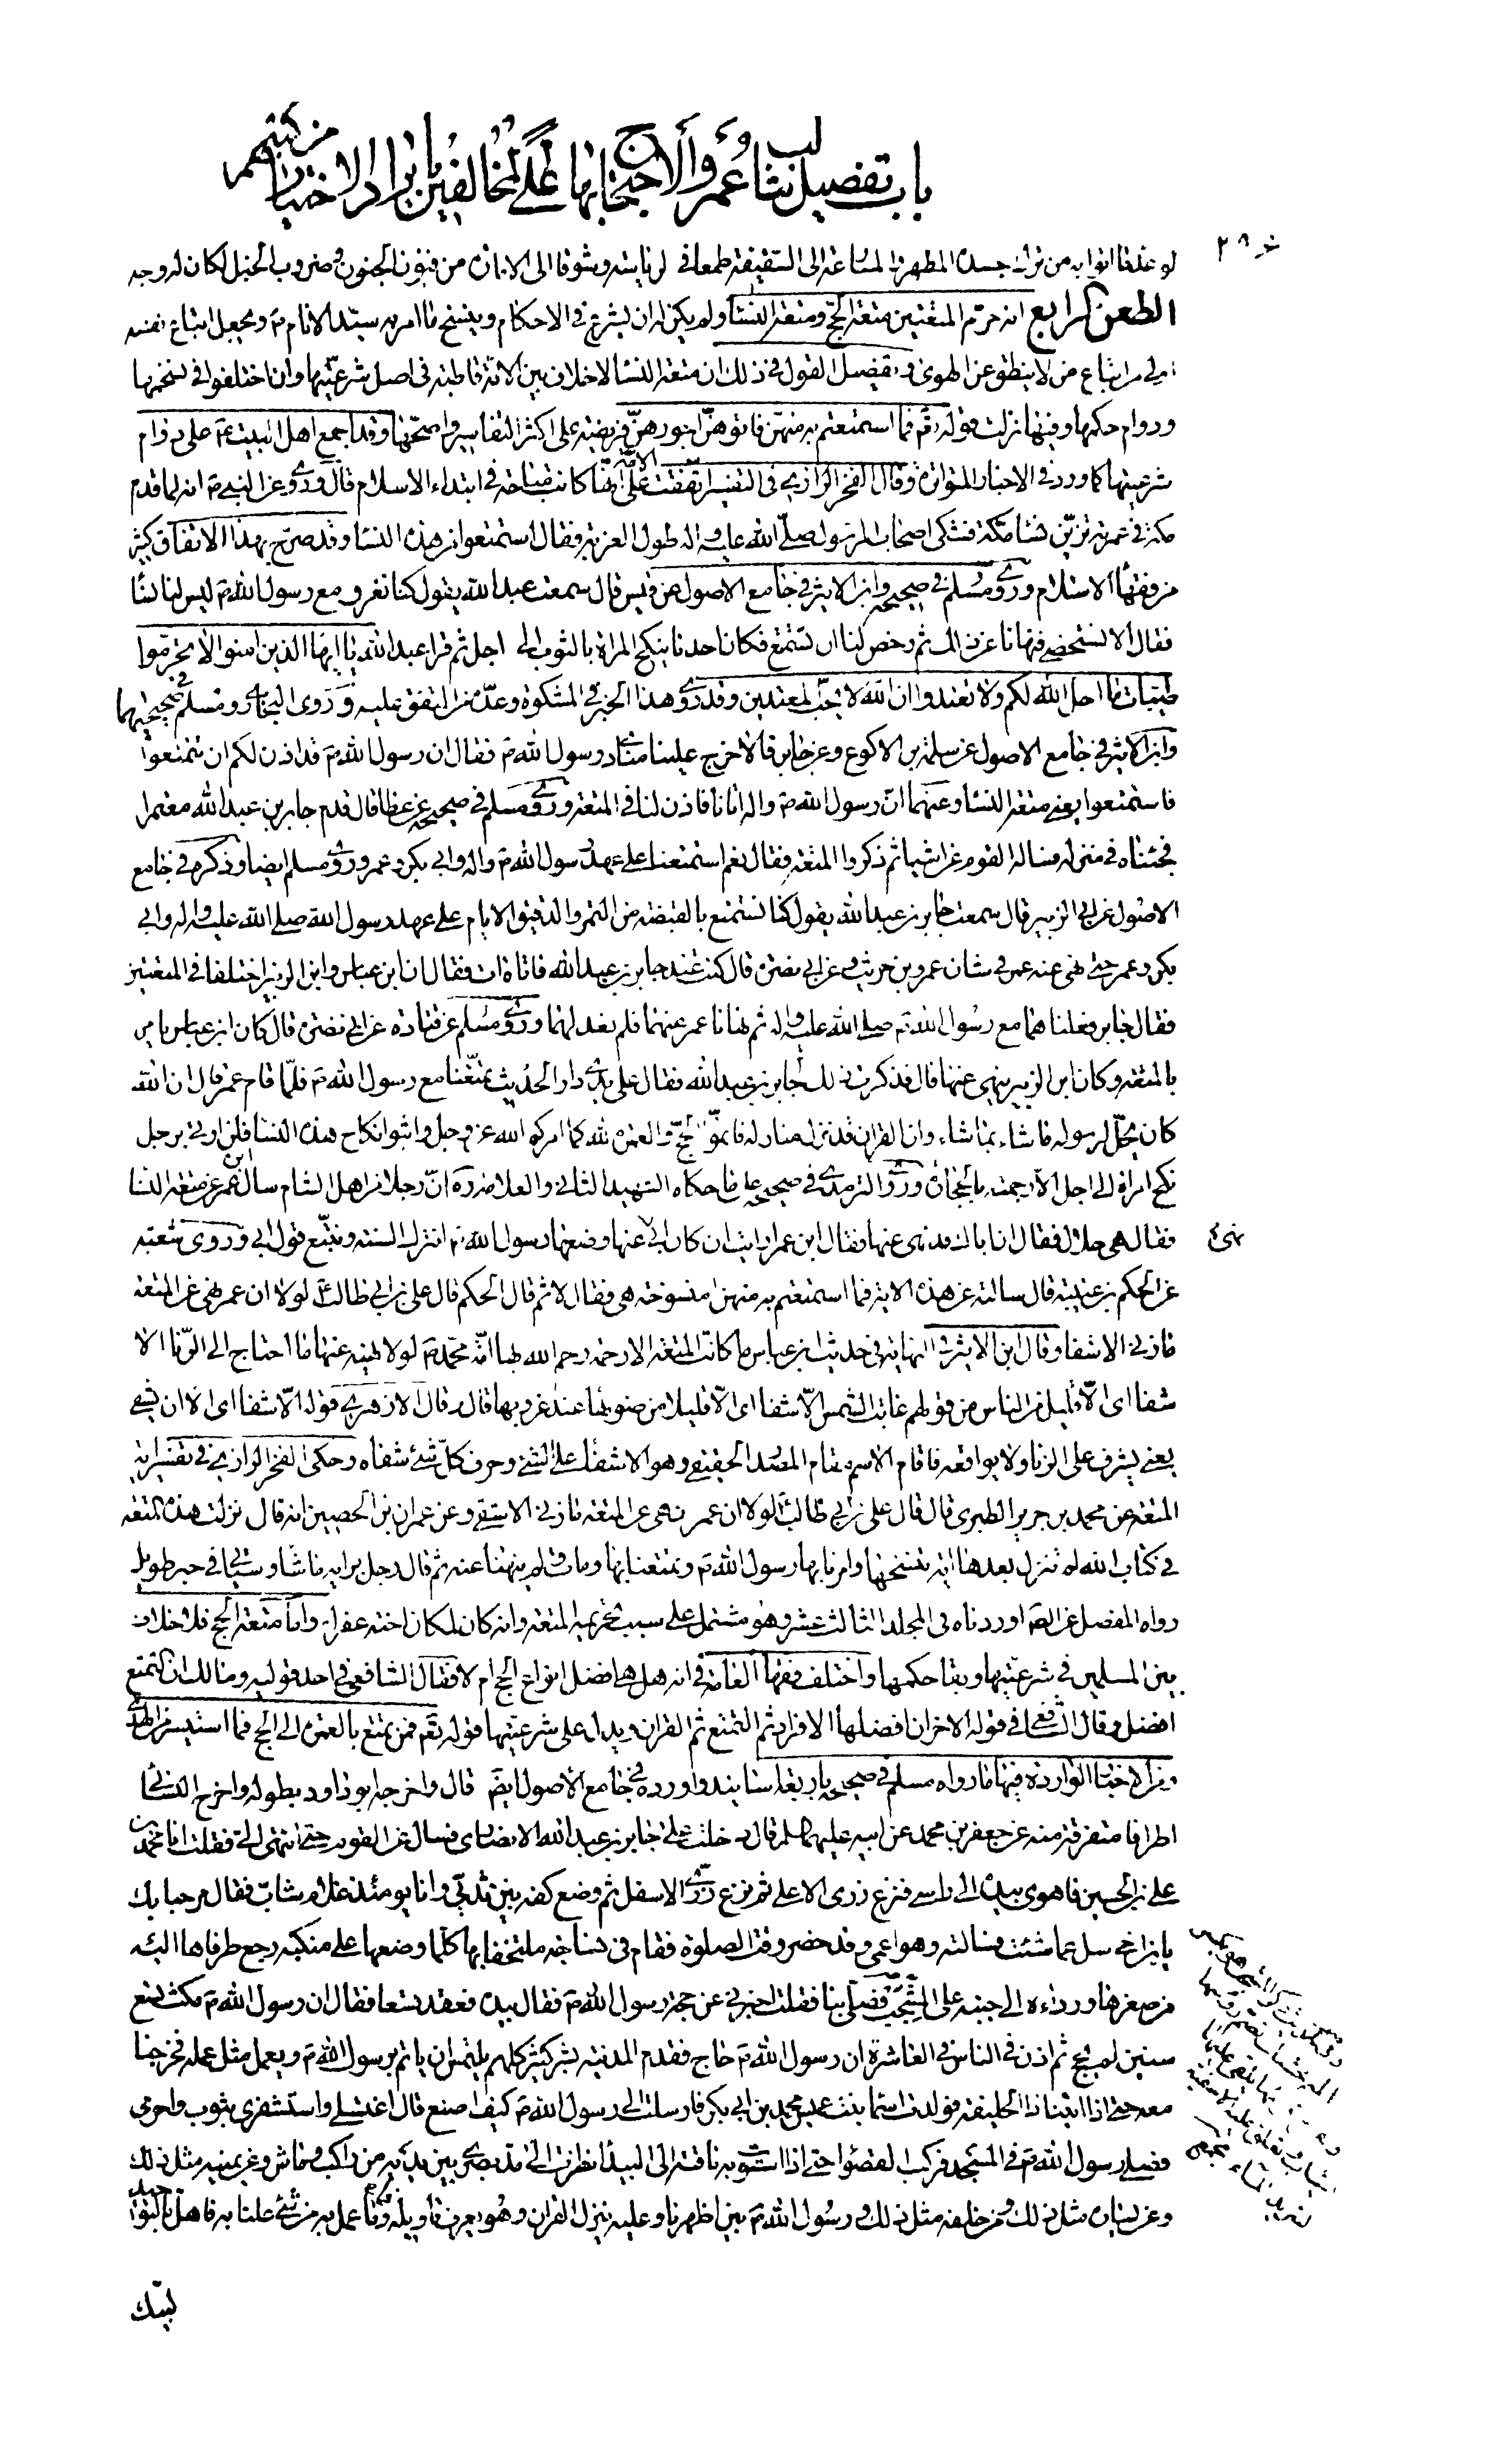 باب تفصيل مثالب عمر والاحتجاج بها على المخالفين بايراد الاخبار من كتبهم
لو غذفا اثوابه من جسده المطهر المسارعة الى السقيفة طمعا في الرياسة وشوقا الى الامارة من فنون الجنون وضروب الخبل لكان له وجه
الطعن الرابع انه حرم المتعتين متعة الحج ومتعة النساء ولم يكن له ان يشرع في الاحكام وينسخ ما امر به سيد الانام ص ويجعل اتباع نفسه
اولى من اتباع من لا ينطق عن الهوى وتفصيل القول في ذلك ان متعة النساء لا خلاف بين الامة قاطبة في اصل شرعيتها وان اختلفوا في نسخها
ودوام حكمها وفيها نزلت قوله تع فما استمتعتم به منهن فاتوهن اجورهن فريضة على اكثر التفاسير واصحها وقد اجمع اهل البيت ع على دوام
شرعيتها كما ورد في الاخبار المتواترة وقال الفخر الرازي في التفسير اتفقت الامة على انها كانت مباحة في ابتداء الاسلام قال وروى عن النبي ص انه لما قدم
مكة في عمرته تزين نساء مكة فشكى اصحاب الرسول صلى الله عليه واله طول العزبة فقال استمتعوا من هذه النساء وقد صرح بهذا الاتفاق كثير
من فقهاء الاسلام وروى مسلم في صحيحه وابن الاثير في جامع الاصول عن قيس قال سمعت عبد الله يقول كنا نغزو مع رسول الله ص ليس لنا نساء
فقال الا نستخصي فنهانا عن ذلك ثم رخص لنا ان نستمتع فكان احدنا ينكح المراة بالثوب الى اجل ثم قرا عبد الله يا ايها الذين امنوا لا تحرموا
طيبات ما احل الله لكم ولا تعتدوا ان الله لا يحب المعتدين وقد روى هذا الخبر في المشكوة وعده من المتفق عليه وروى البخاري ومسلم في صحيحيهما
وابن الاثير في جامع الاصول عن سلمة بن الاكوع وعن جابر قالا خرج علينا منادي رسول الله ص فقال ان رسول الله ص قد اذن لكم ان تتمتعوا
فاستمتعوا يعني متعة النساء وعنهما ان رسول الله ص واله اتانا فاذن لنا في المتعة وروى مسلم في صحيحه عن عطا قال قدم جابر بن عبد الله معتمرا
فجئناه في منزله فساله القوم عن اشياء ثم ذكروا المتعة فقال نعم استمتعنا على عهد رسول الله ص واله وابي بكر وعمر وروى مسلم ايضا وذكره في جامع
الاصول عن ابي الزبير قال سمعت جابر بن عبد الله يقول كنا نستمتع بالقبضة من التمر والدقيق الايام على عهد رسول الله صلى الله عليه واله وابي
بكر وعمر حتى نهى عنه عمر في شان عمرو بن حريث وعن ابي نضرة قال كنت عند جابر بن عبد الله فاتاه ات فقال ان ابن عباس وابن الزبير اختلفا في المتعتين
فقال جابر فعلناهما مع رسول الله ص صلى الله عليه واله ثم نهانا عمر عنهما فلم نعد لهما وروى مسلم عن قتادة عن ابي نضرة قال كان ابن عباس يامر
بالمتعة وكان ابن الزبير ينهى عنها قال فذكرت ذلك لجابر بن عبد الله فقال على يدي دار الحديث تمتعنا مع رسول الله ص فلما قام عمر قال ان الله
كان يحل لرسوله ما شاء بما شاء وان القران قد نزل منازله فاتموا الحج والعمرة لله كما امركم الله عز وجل وابتوا نكاح هذه النساء فلن اوتى برجل
نكح امراة الى اجل الا رجمته بالحجارة وروى الترمذي في صحيحه على ما حكاه الشهيد الثاني والعلامة ره ان رجلا من اهل الشام سال ابن عمر عن متعة النسا
فقال هي حلال فقال ان اباك قد نهى عنها فقال ابن عمر ارايت ان كان ابي نهى عنها وضعها رسول الله ص انترك السنة ونتبع قول ابي وروى شعبة
عن الحكم بن عتيبة قال سالته عن هذه الاية فما استمتعتم به منهن امنسوخة هي فقال لا ثم قال الحكم قال علي بن ابي طالب ع لولا ان عمر نهى عن المتعة
ما زنى الا شفا وقال ابن الاثير في النهاية في حديث ابن عباس ما كانت المتعة الا رحمة رحم الله بها امة محمد ص لولا نهيه عنها ما احتاج الى الزنا الا
شفا اى الا قليل من الناس من قولهم غابت الشمس الا شفا اى الا قليلا من ضوئها عند غروبها قال وقال الازهري قوله الا شفا اى الا ان يشفي
يعني يشرف على الزنا ولا يواقعه فاقام الاسم مقام المصدر الحقيقي وهو الاشفاء على الشئ وحرف كل شئ شفاه وحكى الفخر الرازي في تفسير اية
المتعة عن محمد بن جرير الطبري قال قال علي بن ابي طالب لولا ان عمر نهى عن المتعة ما زنى الا شقي وعن عمران بن الحصين انه قال نزلت هذه المتعة
في كتاب الله لم تنزل بعدها اية تنسخها وامرنا بها رسول الله ص وتمتعنا بها ومات ولم ينهنا عنه ثم قال رجل برايه ما شاء وسياتي في خبر طويل
رواه المفضل عن الص اوردناه في المجلد الثالث عشر وهو مشتمل على سبب تحريمه المتعة وانه كان لمكان اخته عفراء واما متعة الحج فلا خلاف
بين المسلمين في شرعيتها وبقاء حكمها واختلف فقهاء العامة في انه هل هي افضل انواع الحج ام لا فقال الشافعي في احد قوليه ومالك ان التمتع
افضل وقال الشافعي في قوله الاخر ان افضلها الافراد ثم التمتع ثم القران ويدل على شرعيتها قوله تعم فمن تمتع بالعمرة الى الحج فما استيسر من الهدي
ومن الاخبار الواردة فيها ما رواه مسلم في صحيحه باربعة اسانيد واورده في جامع الاصول ايضا قال واخرجه ابو داود بطوله واخرج النسائي
اطرافا متفرقة منه عن جعفر بن محمد عن ابيه عليهما السلم قال دخلت على جابر بن عبد الله الانصاري فسال عن القوم حتى انتهى الي فقلت انا محمد بن
علي بن الحسين فاهوى بيده الى راسي فنزع زري الاعلى ثم نزع زري الاسفل ثم وضع كفه بين ثديي وانا يومئذ غلام شاب فقال مرحبا بك
يا بن اخي سل عما شئت فسالته وهو اعمى وقد حضر وقت الصلوة فقام في نساجة ملتحفا بها كلما وضعها على منكبه رجع طرفاها اليه
من صغرها ورداءه الى جنبه على المشجب فصلى بنا فقلت اخبرني عن حجة رسول الله ص فقال بيده فعقد تسعا فقال ان رسول الله ص مكث تسع
سنين لم يحج ثم اذن في الناس في العاشرة ان رسول الله ص حاج فقدم المدينة بشر كثير كلهم يلتمس ان ياتم برسول الله ص ويعمل مثل عمله فخرجنا
معه حتى اذا اتينا ذا الحليفة فولدت اسماء بنت عميس محمد بن ابي بكر فارسلت الى رسول الله ص كيف اصنع قال اغتسلي واستثفري بثوب واحرمي
فصلى رسول الله ص في المسجد فركب القصواء حتى اذا استوت به ناقته الى البيداء نظرت الى مد بصري بين يديه من راكب وماش وعن يمينه مثل ذلك
وعن يساره مثل ذلك ومن خلفه مثل ذلك ورسول الله ص بين اظهرنا وعليه ينزل القران وهو يعرف تاويله فما عمل به من شئ عملنا به فاهل بالتوحيد
لبيك